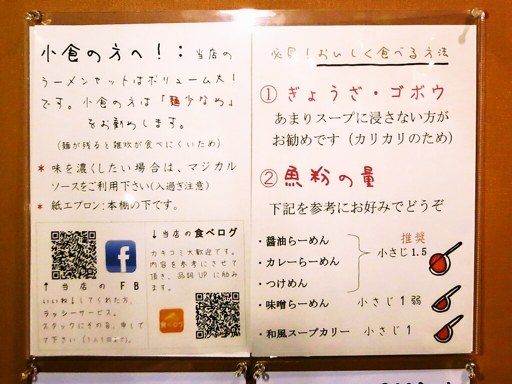 小食の方へ!:当店の
ラーメンセットはボリューム大!
です。小食の方は「麺少なめ」
をお勧めします。
(麺が残ると雑炊が食べにくいため)
* 味を濃くしたい場合は、マジカル
ソースをご利用下さい(入過ぎ注意)
* 紙エプロン:本棚の下です。
↓当店の食べログ
カキコミ大歓迎です。
内容を参考にさせて
頂き、品調UPに励み
ます。
↑当店のFB
いいね↓してくれた方、
ラッシーサービス。
スタッフにその旨、申して
下さい
食べログ
必見!おいしく食べる方法
① ぎょうざ・ゴボウ
あまりスープに浸さない方が
お勧めです(カリカリのため)
② 魚粉の量
下記を参考にお好みでどうぞ
・醤油らーめん
・カレーらーめん
・つけめん
推奨
小さじ1.5
・味噌らーめん 小さじ1弱
・和風スープカリー 小さじ1